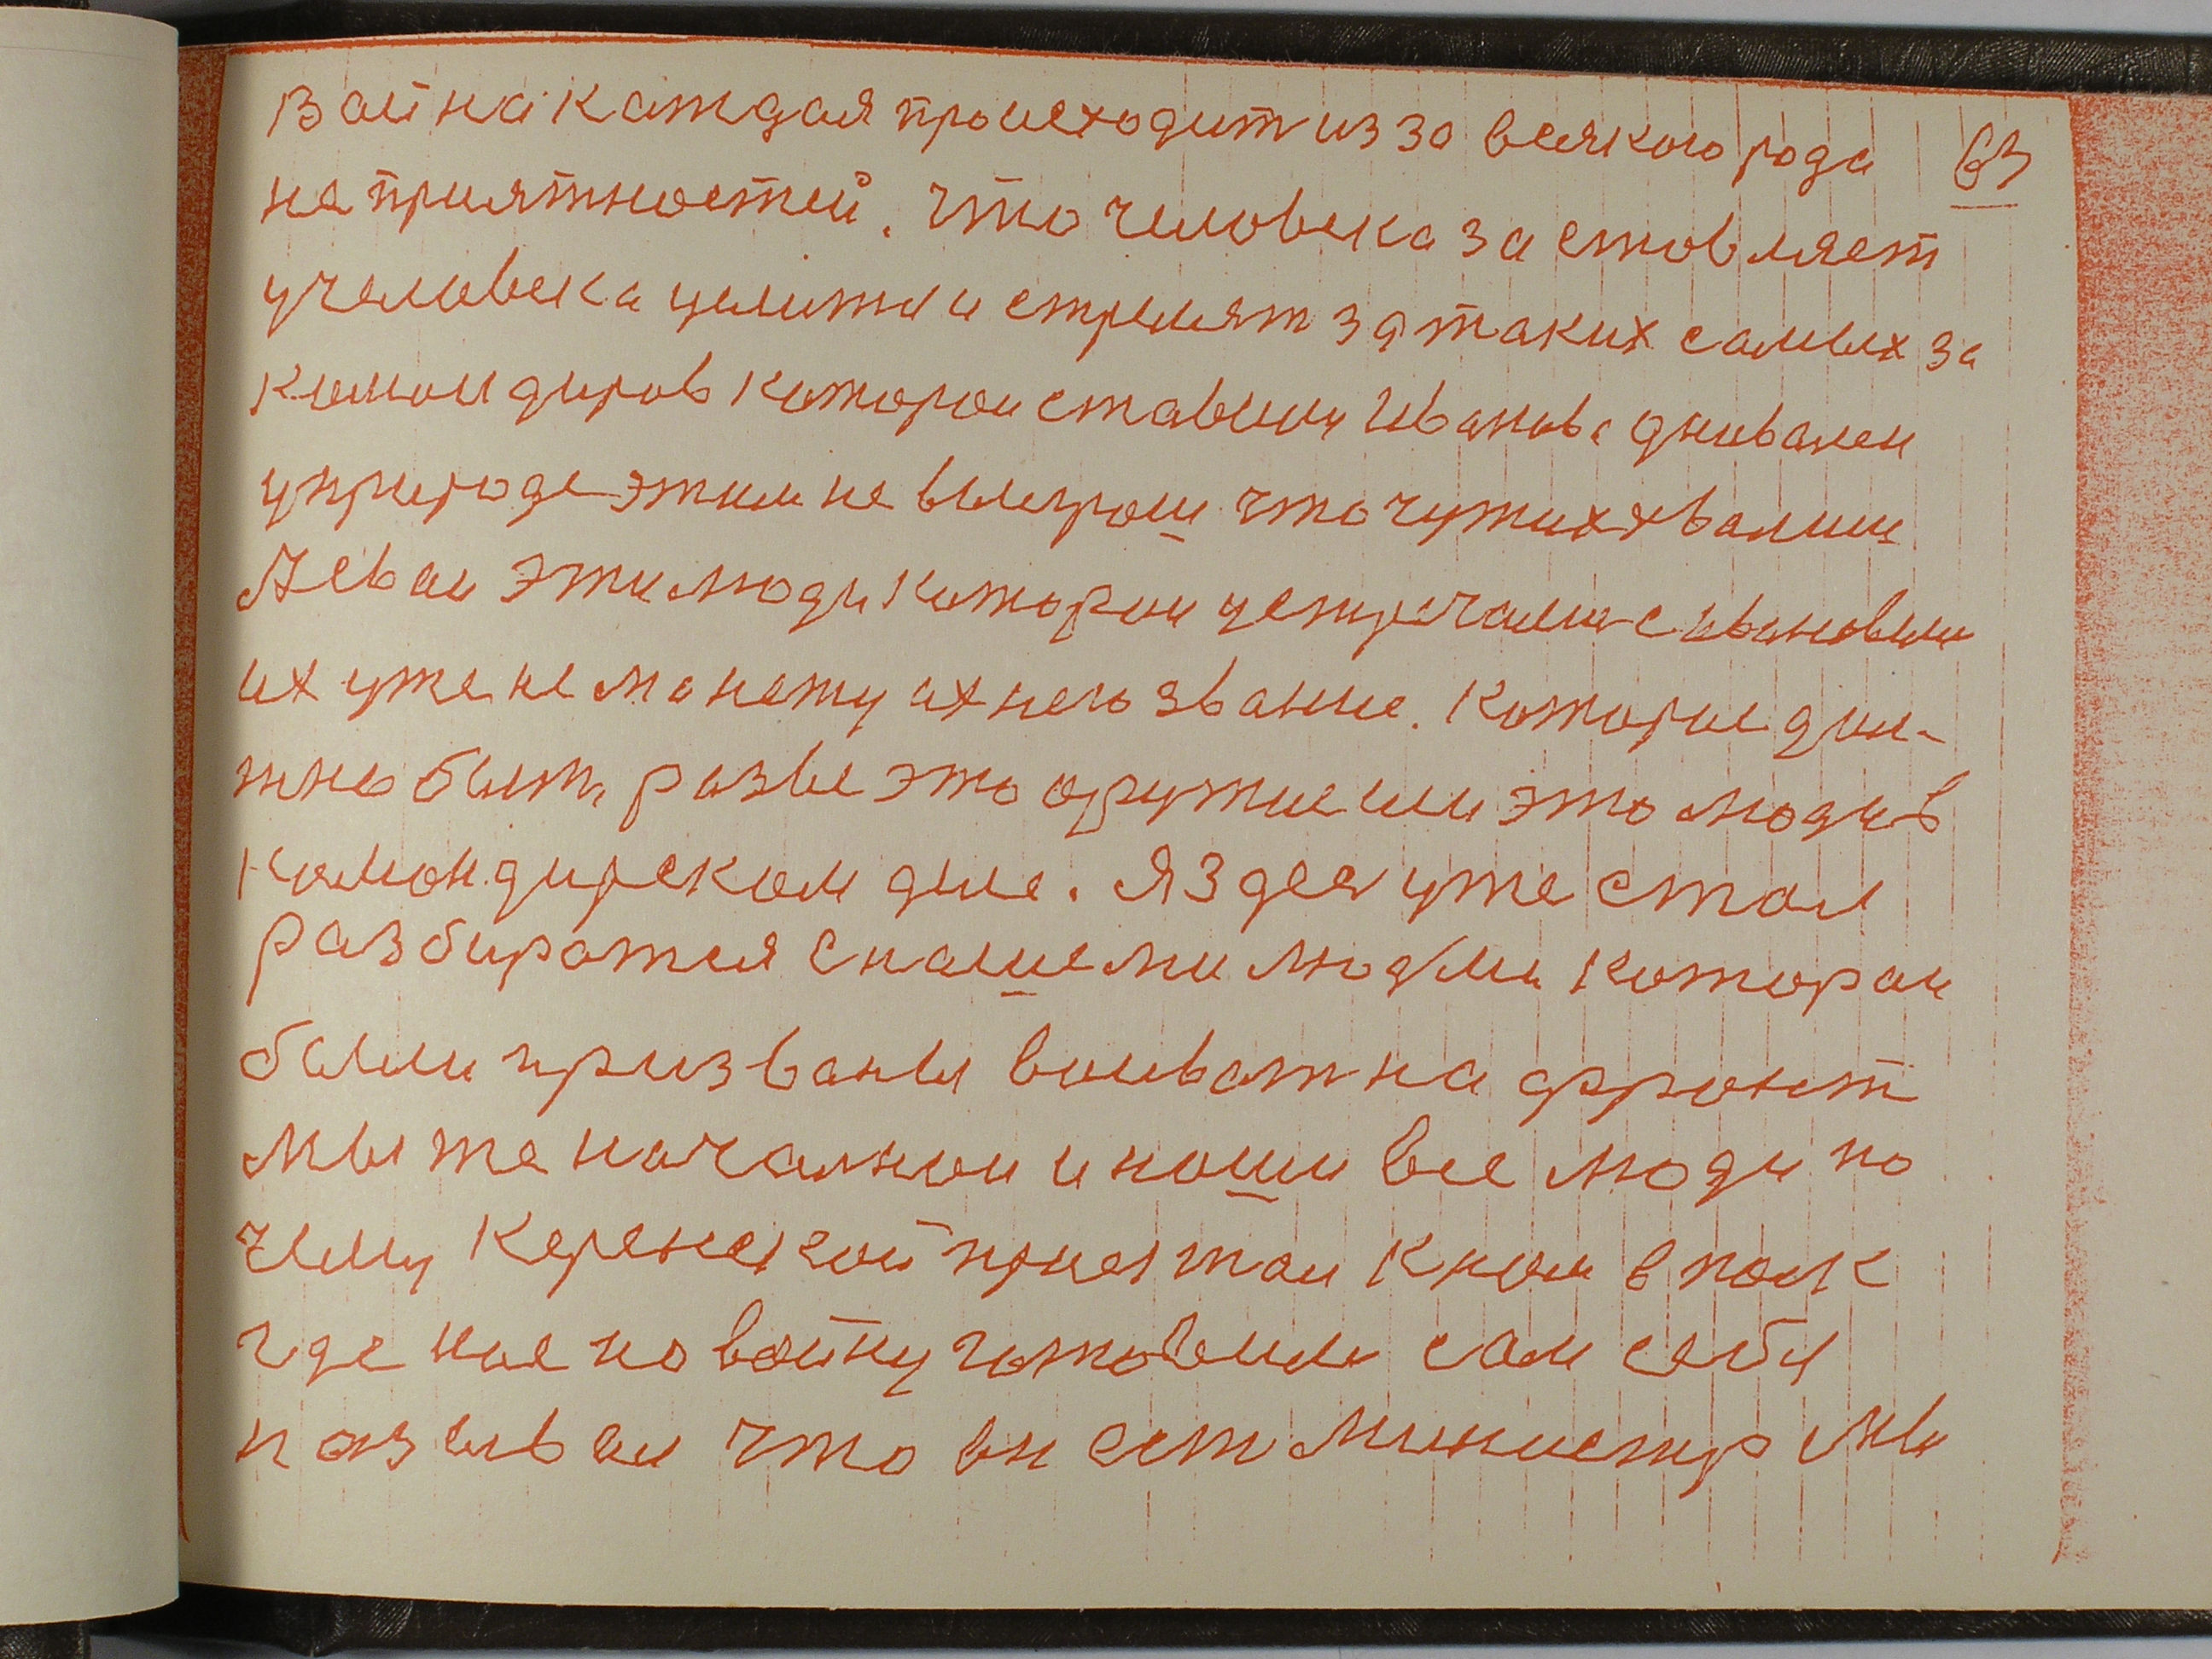 Война каждая происходит из за всякого рода 63
неприятностей. Что человека заставляет
у человека целитя и стрелят за таких самых за
командиров которои ставили Иванова дневалеи
у природе этим не выиграш что чужих хвалиш
А свои эти люди которои устречалис с ивановим
их уже не манежу ихнего звание. Которые дол-
жно быть разве это оружие или это люди в
командирском деле. Я здеся уже стал
разбиратися с нашеми людми которои
были призваны воиват на фронт
Мы же началнои и наши все люди по
чему Керенскои приежжаи к нам в полк
где нас на войну готовили сам себя
називаи что он ест министр мы